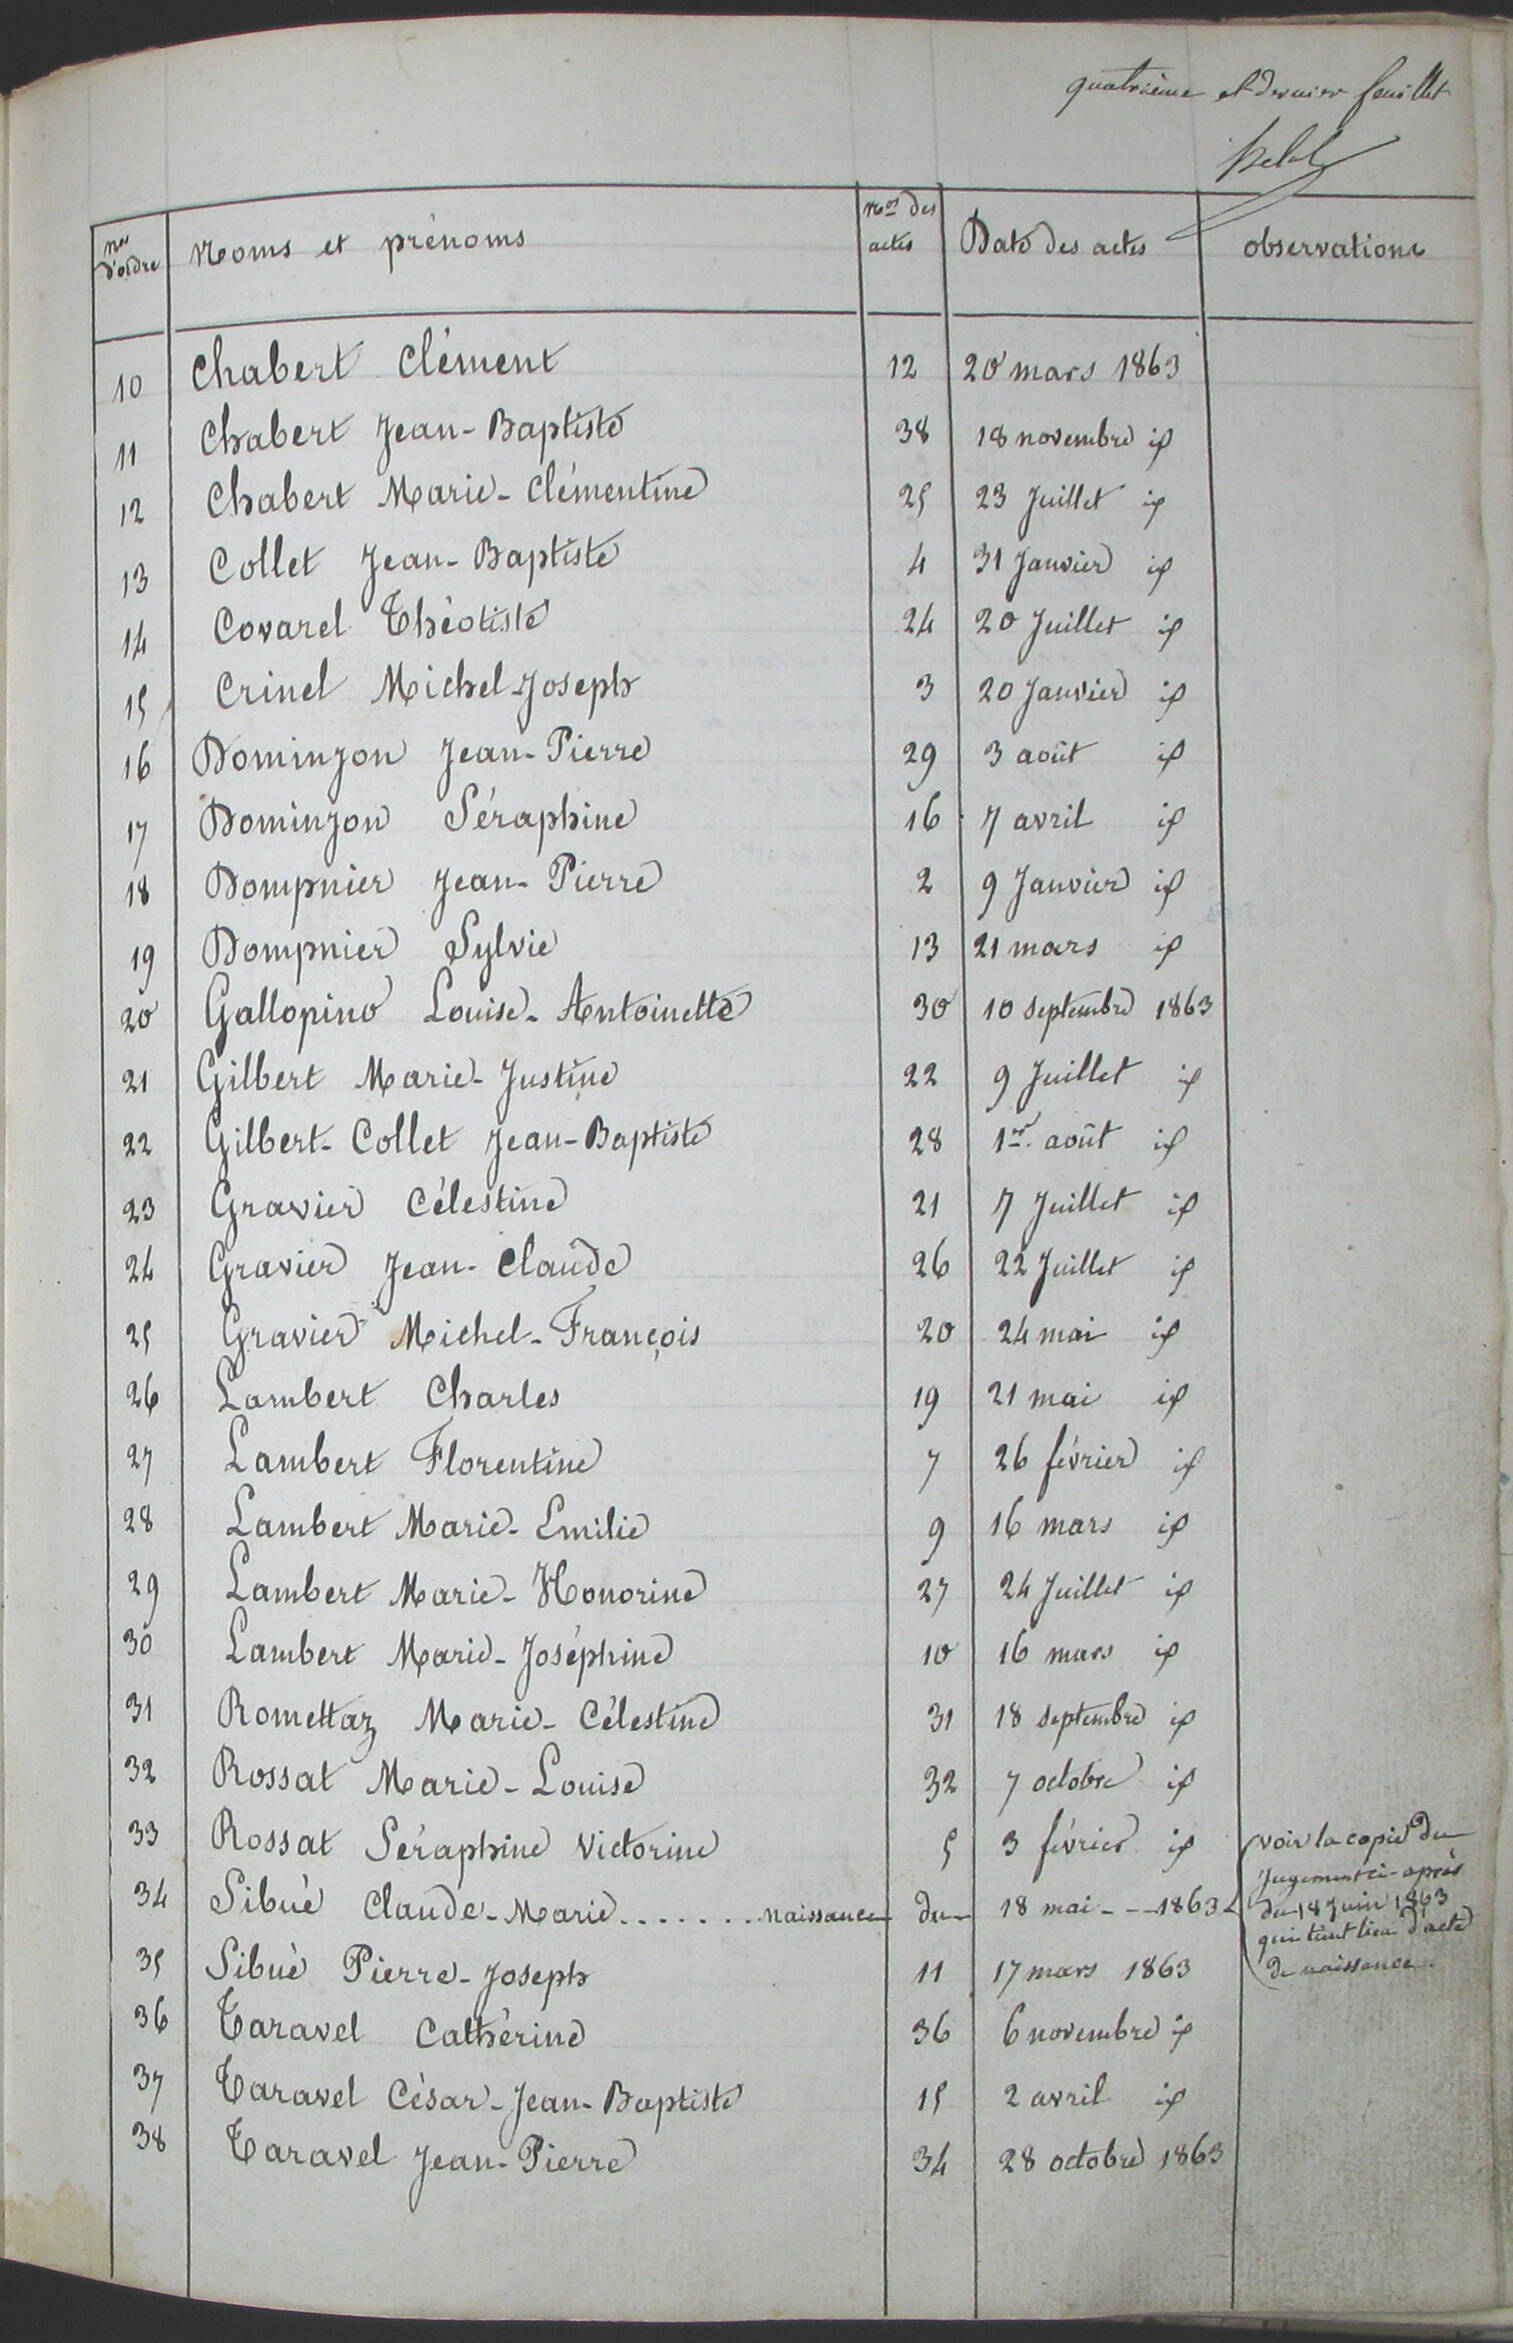 quatrième et dernier feuillet
nos d'ordre Noms et prénoms nos des actes Date des actes observations
10 Chabert Clément 12 20 mars 1863
11 Chabert Jean-Baptiste 38 18 novembre id
12 Chabert Marie-Clémentine 25 23 Juillet id
13 Collet Jean-Baptiste 4 31 Janvier id
14 Covarel Théotiste 24 20 Juillet id
15 Crinel Michel-Joseph 3 20 Janvier id
16 Dominjon Jean-Pierre 29 3 août id
17 Dominjon Séraphine 16 7 avril id
18 Dompnier Jean-Pierre 2 9 Janvier id
19 Dompnier Sylvie 13 21 mars id
20 Gallopino Louise-Antoinette 30 10 septembre 1863
21 Gilbert Marie-Justine 22 9 Juillet id
22 Gilbert-Collet Jean-Baptiste 28 1er. août id
23 Gravier Célestine 21 7 Juillet id
24 Gravier Jean-Claude 26 22 Juillet id
25 Gravier Michel-François 20 24 mai id
26 Lambert Charles 19 21 mai id
27 Lambert Florentine 7 26 février id
28 Lambert Marie-Emilie 9 16 mars id
29 Lambert Marie-Honorine 27 24 Juillet id
30 Lambert Marie-Joséphine 10 16 mars id
31 Romettaz Marie-Célestine 31 18 septembre id
32 Rossat Marie-Louise 32 7 octobre id
33 Rossat Séraphine Victorine 5 3 février id
34 Sibué Claude-Marie.......naissance du 18 mai - - 1863
voir la copie du
Jugement ci-après
du 18 Juin 1863
qui tient lieu d'acte
de naissance.
35 Sibué Pierre-Joseph 11 17 mars 1863
36 Taravel Cathérine 36 6 novembre id
37 Taravel César-Jean-Baptiste 15 2 avril id
38 Taravel Jean-Pierre 34 28 octobre 1863